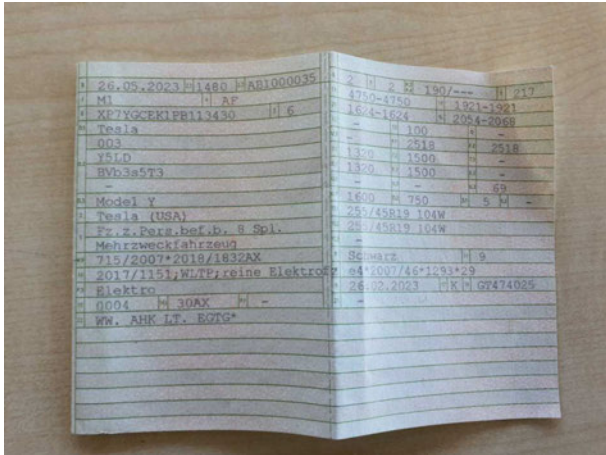 26.05.2023 1480 AB1000035
M1 AF
XP7YGCEK1PB113430 6
Tesla
003
Y5LD
BVb3s5T3
-
Model Y
Tesla (USA)
Fz.z.Pers.bef.b. 8 Spl.
Mehrzweckfahrzeug
715/2007*2018/1832AX
2017/1151;WLTP;reine Elektrofz
Elektro
0004 30AX -
WW. AHK LT. EGTG*
2 2 190/--- 217
4750-4750 1921-1921
1624-1624 2054-2068
- 100 -
- 2518 2518
1320 1500 -
1320 1500 -
- - 69
1600 750 5 -
255/45R19 104W
255/45R19 104W
-
Schwarz 9
e4*2007/46*1293*29
26.02.2023 K GT474025
-